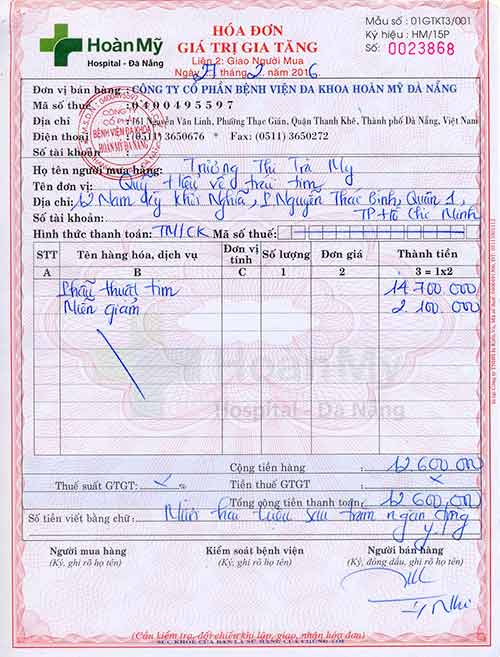 HoànMỹ
Hospital - Đà Nẵng
HÓA ĐƠN
GIÁ TRỊ GIA TĂNG
Liên 2: Giao Người Mua
Ngày 27 tháng 2 năm 2016
Mẫu số : 01GTKT3/001
Ký hiệu : HM/15P
Số: 0023868
Đơn vị bán hàng : CÔNG TY CỔ PHẦN BỆNH VIỆN ĐA KHOA HOÀN MỸ ĐÀ NẴNG
Mã số thuế : 0400495597
Địa chỉ : 161 Nguyễn Văn Linh, Phường Thạc Gián, Quận Thanh Khê, Thành phố Đà Nẵng, Việt Nam
Điện thoại : (0511) 3650676 * Fax: (0511) 3650272
Số tài khoản :
BỆNH VIỆN ĐA KHOA
HOÀN MỸ ĐÀ NẴNG
Họ tên người mua hàng: Trương Thị Trà My
Tên đơn vị: Quỹ Hiểu về trái tim
Địa chỉ: 62 Nam Kỳ Khởi Nghĩa, P. Nguyễn Thái Bình, Quận 1,
Số tài khoản: TP Hồ Chí Minh
Hình thức thanh toán: TM/CK Mã số thuế:
STT Tên hàng hóa, dịch vụ Đơn vị tính Số lượng Đơn giá Thành tiền
A B C 1 2 3 = 1x2
Phẫu thuật tim 14.700.000
Miễn giảm 2.100.000
HoànMỹ
Hospital - Đà Nẵng
Cộng tiền hàng : 12.600.000
Thuế suất GTGT: % Tiền thuế GTGT : x
Tổng cộng tiền thanh toán: 12.600.000
Số tiền viết bằng chữ: Mười hai triệu sáu trăm ngàn đồng
Người mua hàng Kiểm soát bệnh viện Người bán hàng
(Ký, ghi rõ họ tên) (Ký, ghi rõ họ tên) (Ký, đóng dấu, ghi rõ họ tên)
(Cần kiểm tra, đối chiếu khi lập, giao, nhận hóa đơn)
SỨC KHỎE CỦA BẠN LÀ SỨ MỆNH CỦA CHÚNG TÔI